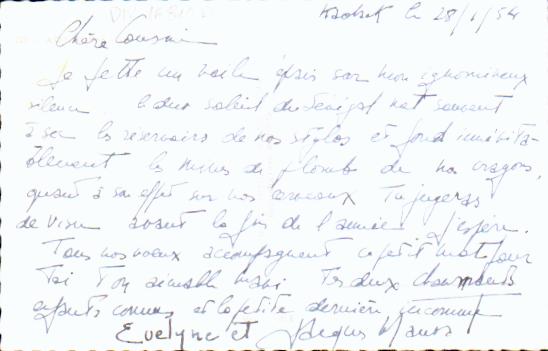 le 28/1/54
Chère Cousine
Je jette un voile épais sur mon ignominieux
silence le dur soleil du Sénégal met souvent
à sec les réservoirs de nos stylos et fond inévita-
blement les mines de plomb de nos crayons,
quant à son effet sur nos cerveaux Tu jugeras
de visu avant la fin de l'année j'espère.
Tous nos voeux accompagnent ce petit mot pour
Toi Ton aimable mari Tes deux charmants
enfants connus et la petite dernière inconnue
Evelyne et Jacques